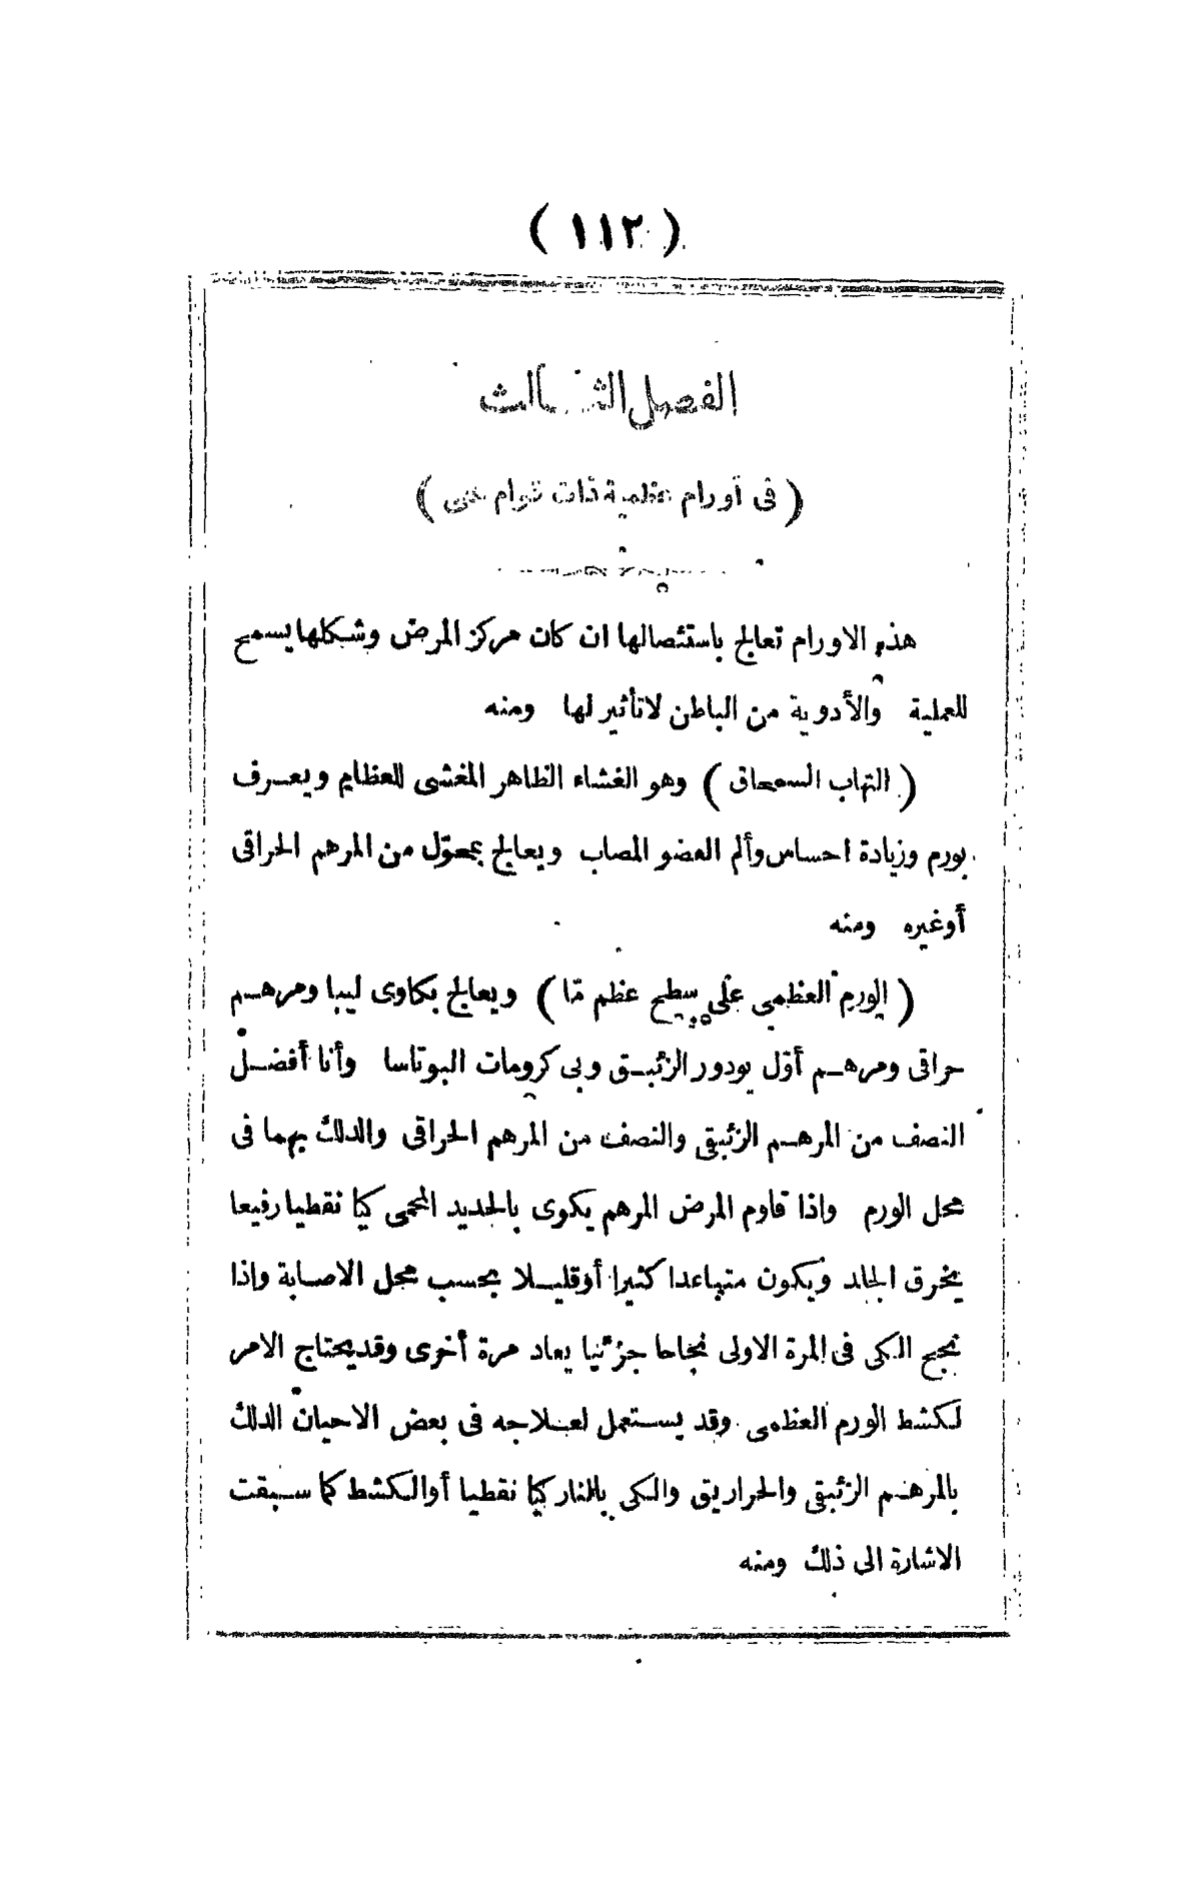 ( ١١٢ )
الفصل الثالث
( فى أورام عظمية ذات قوام )
هذه الاورام تعالج باستئصالها ان كان مركز المرض وشكلها يسمح
للعملية والأدوية من الباطن لا تأثير لها ومنه
( التهاب السمحاق ) وهو الغشاء الظاهر المغشى للعظام ويعرف
بورم وزيادة احساس وألم العضو المصاب ويعالج بمحوّل من المرهم الحراقى
أوغيره ومنه
( الورم العظمى على سطح عظم مّا ) ويعالج بكاوى ليبا ومرهم
حراقى ومرهم أوّل يودور الزئبق وبى كرومات البوتاسا وأنا أفضل
النصف من المرهم الزئبقى والنصف من المرهم الحراقى والدلك بهما فى
محل الورم واذا قاوم المرض المرهم يكوى بالحديد المحمى كيا نقطيا رفيعا
يخرق الجلد ويكون متباعدا كثيرا أوقليلا بحسب محل الاصابة واذا
نجح الكى فى المرة الاولى نجاحا جزئيا يعاد مرة أخرى وقد يحتاج الامر
لكشط الورم العظمى وقد يستعمل لعلاجه فى بعض الاحيان الدلك
بالمرهم الزئبقى والحراريق والكى بالنار كيا نقطيا أوالكشط كما سبقت
الاشارة الى ذلك ومنه